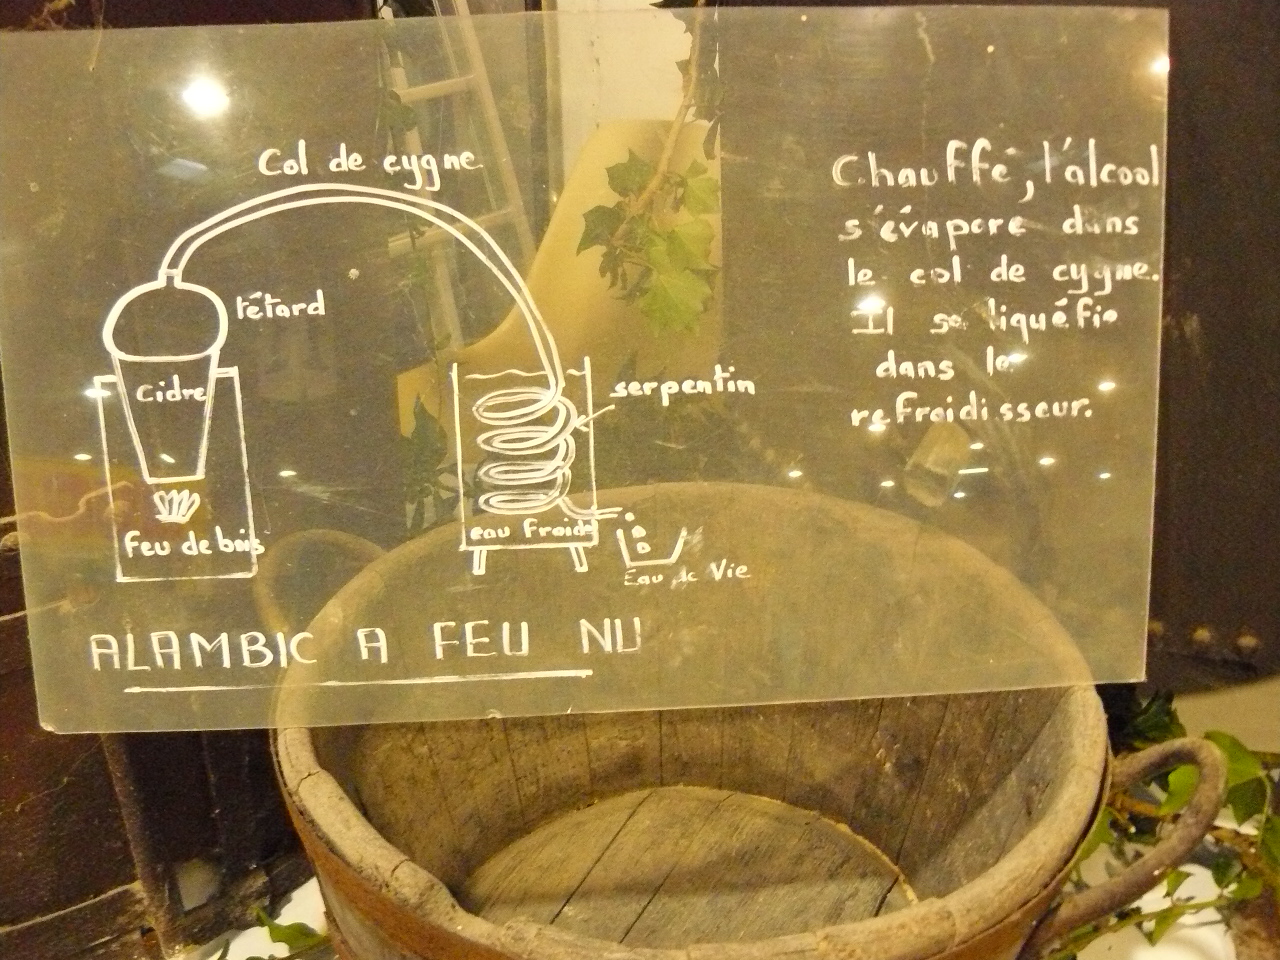 Col de cygne
têtard
Cidre
Feu de bois
serpentin
eau froide
Eau de Vie
ALAMBIC A FEU NU
Chauffé, l'alcool
s'évapore dans
le col de cygne.
Il se liquéfie
dans le
refroidisseur.